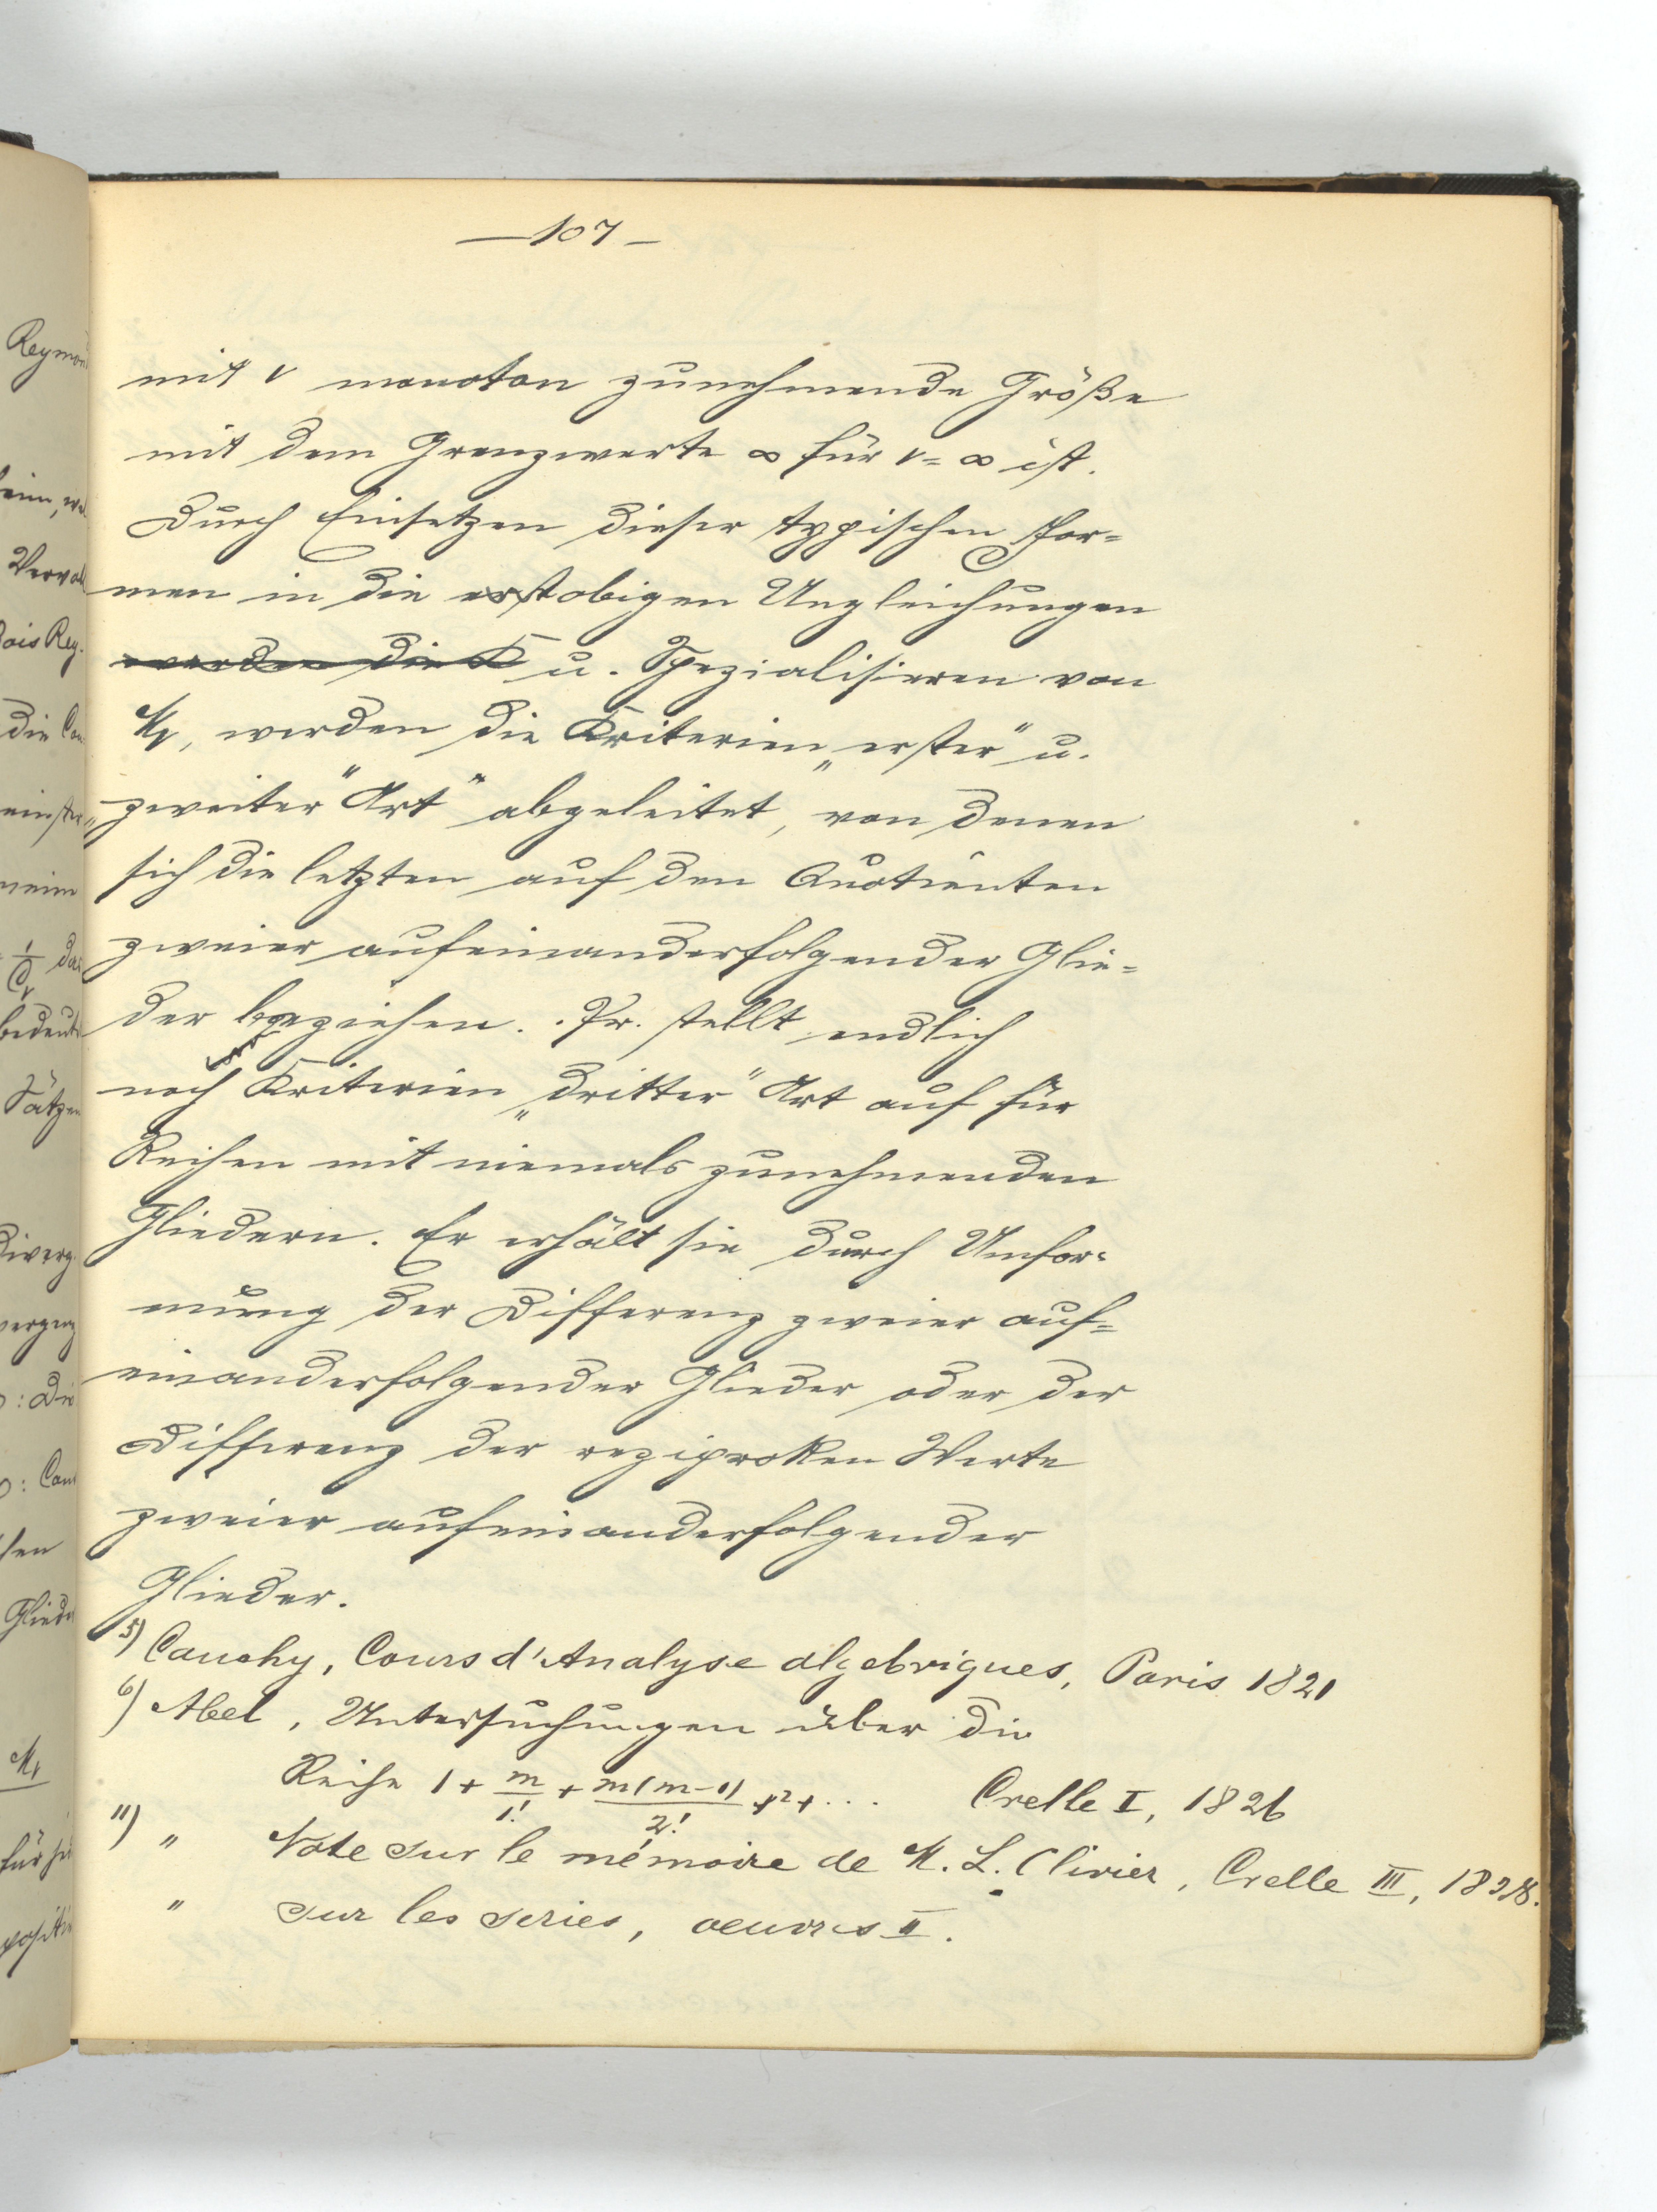 — 107 —
mit ν monoton zunehmende Größe
mit dem Grenzwerte ∞ für ν = ∞ ist.
Durch Einsetzen dieser typischen For=
men in die erst obigen Ungleichungen
werden die K u. Spezialisieren von
Mν, werden die Kriterien „erster" u.
„zweiter" Art" abgeleitet, von denen
sich die letzten auf den Quotienten
zweier aufeinanderfolgender Glie=
der beziehen. Pr. stellt endlich
noch Kriterien „dritter" Art auf für
Reihen mit niemals zunehmenden
Gliedern. Er erhält sie durch Umfor=
mung der Differenz zweier auf=
einanderfolgender Glieder oder der
Differenz der reziproken Werte
zweier aufeinanderfolgender
Glieder.
5) Cauchy, Cours d'Analyse algebriques, Paris 1821
6) Abel, Untersuchungen über die
Reihe 1 + m/1! + m(m-1)/2! + ... Crelle I, 1826
11) " Note sur le mémoire de M. L. Olivier, Crelle III, 1828.
" sur les series, oeuvres II.